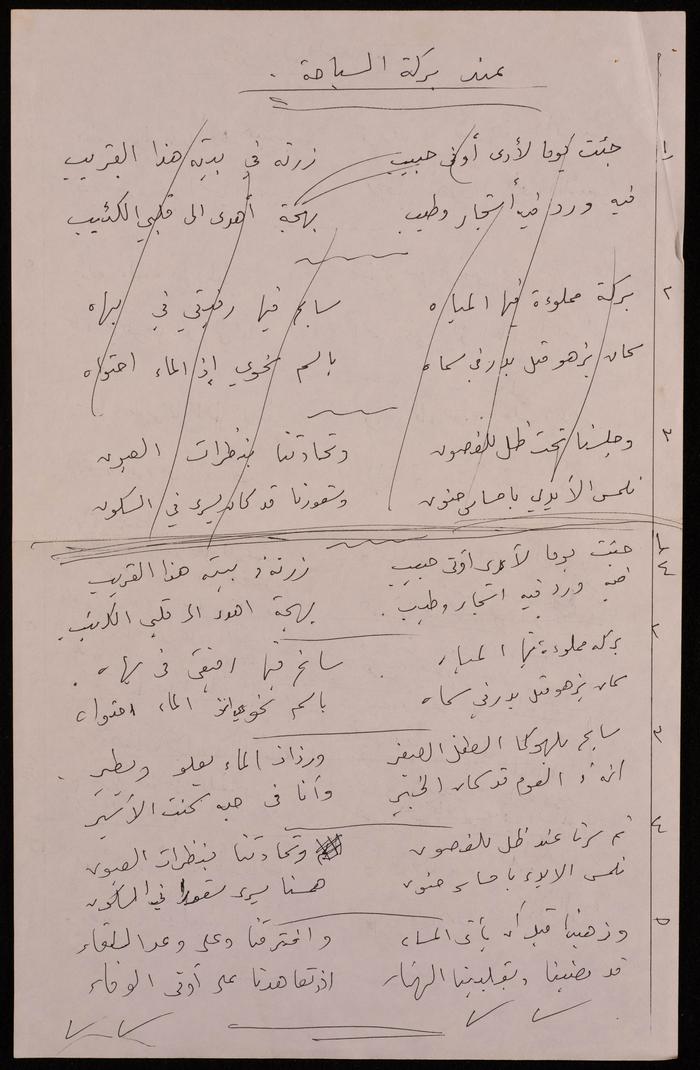 عند بركة السباحة .
١ جئت يوما لأرى أوفى حبيب زرته في بيته هذا القريب
فيه ورد فيه أشجار وطيب بهجة أهدى الى قلبي الكئيب
٢ بركة مملوءة فيها المياه سابح فيها رفيقي في بهاه
كان يزهو مثل بدر في سماه باسم نحوي إذ الماء احتواه
٣ وجلسنا تحت ظل للغصون وتحادثنا بنظرات العيون
نلمس الأيدي باحساس حنون وشعورنا قد كان يسري في السكون
١ جئت يوما لأرى أوفى حبيب زرته في بيته هذا القريب
فيه ورد فيه اشجار وطيب . بهجة اهدى الى قلبي الكئيب .
٢ بركة مملوءة فيها المياه . سابح فيها رفيقي في بهاه .
كان يزهو مثل بدر في سماه باسم نحوي اذ الماء احتواه
٣ سابح يلهو كما الطفل الصغير ورذاذ الماء يعلو ويطير .
انه في العوم قد كان الخبير وأنا في حبه كنت الأسير
٤ ثم سرنا عند ظل للغصون وتحادثنا بنظرات العيون
نلمس الايدي باحساس حنون همسنا يسري شعورا في السكون
٥ وذهبنا قبل أن يأتي المساء وافترقنا وعلى وعد اللقاء
قد مضينا وبقلبينا الهناء اذ تعاهدنا على أوفى الوفاء